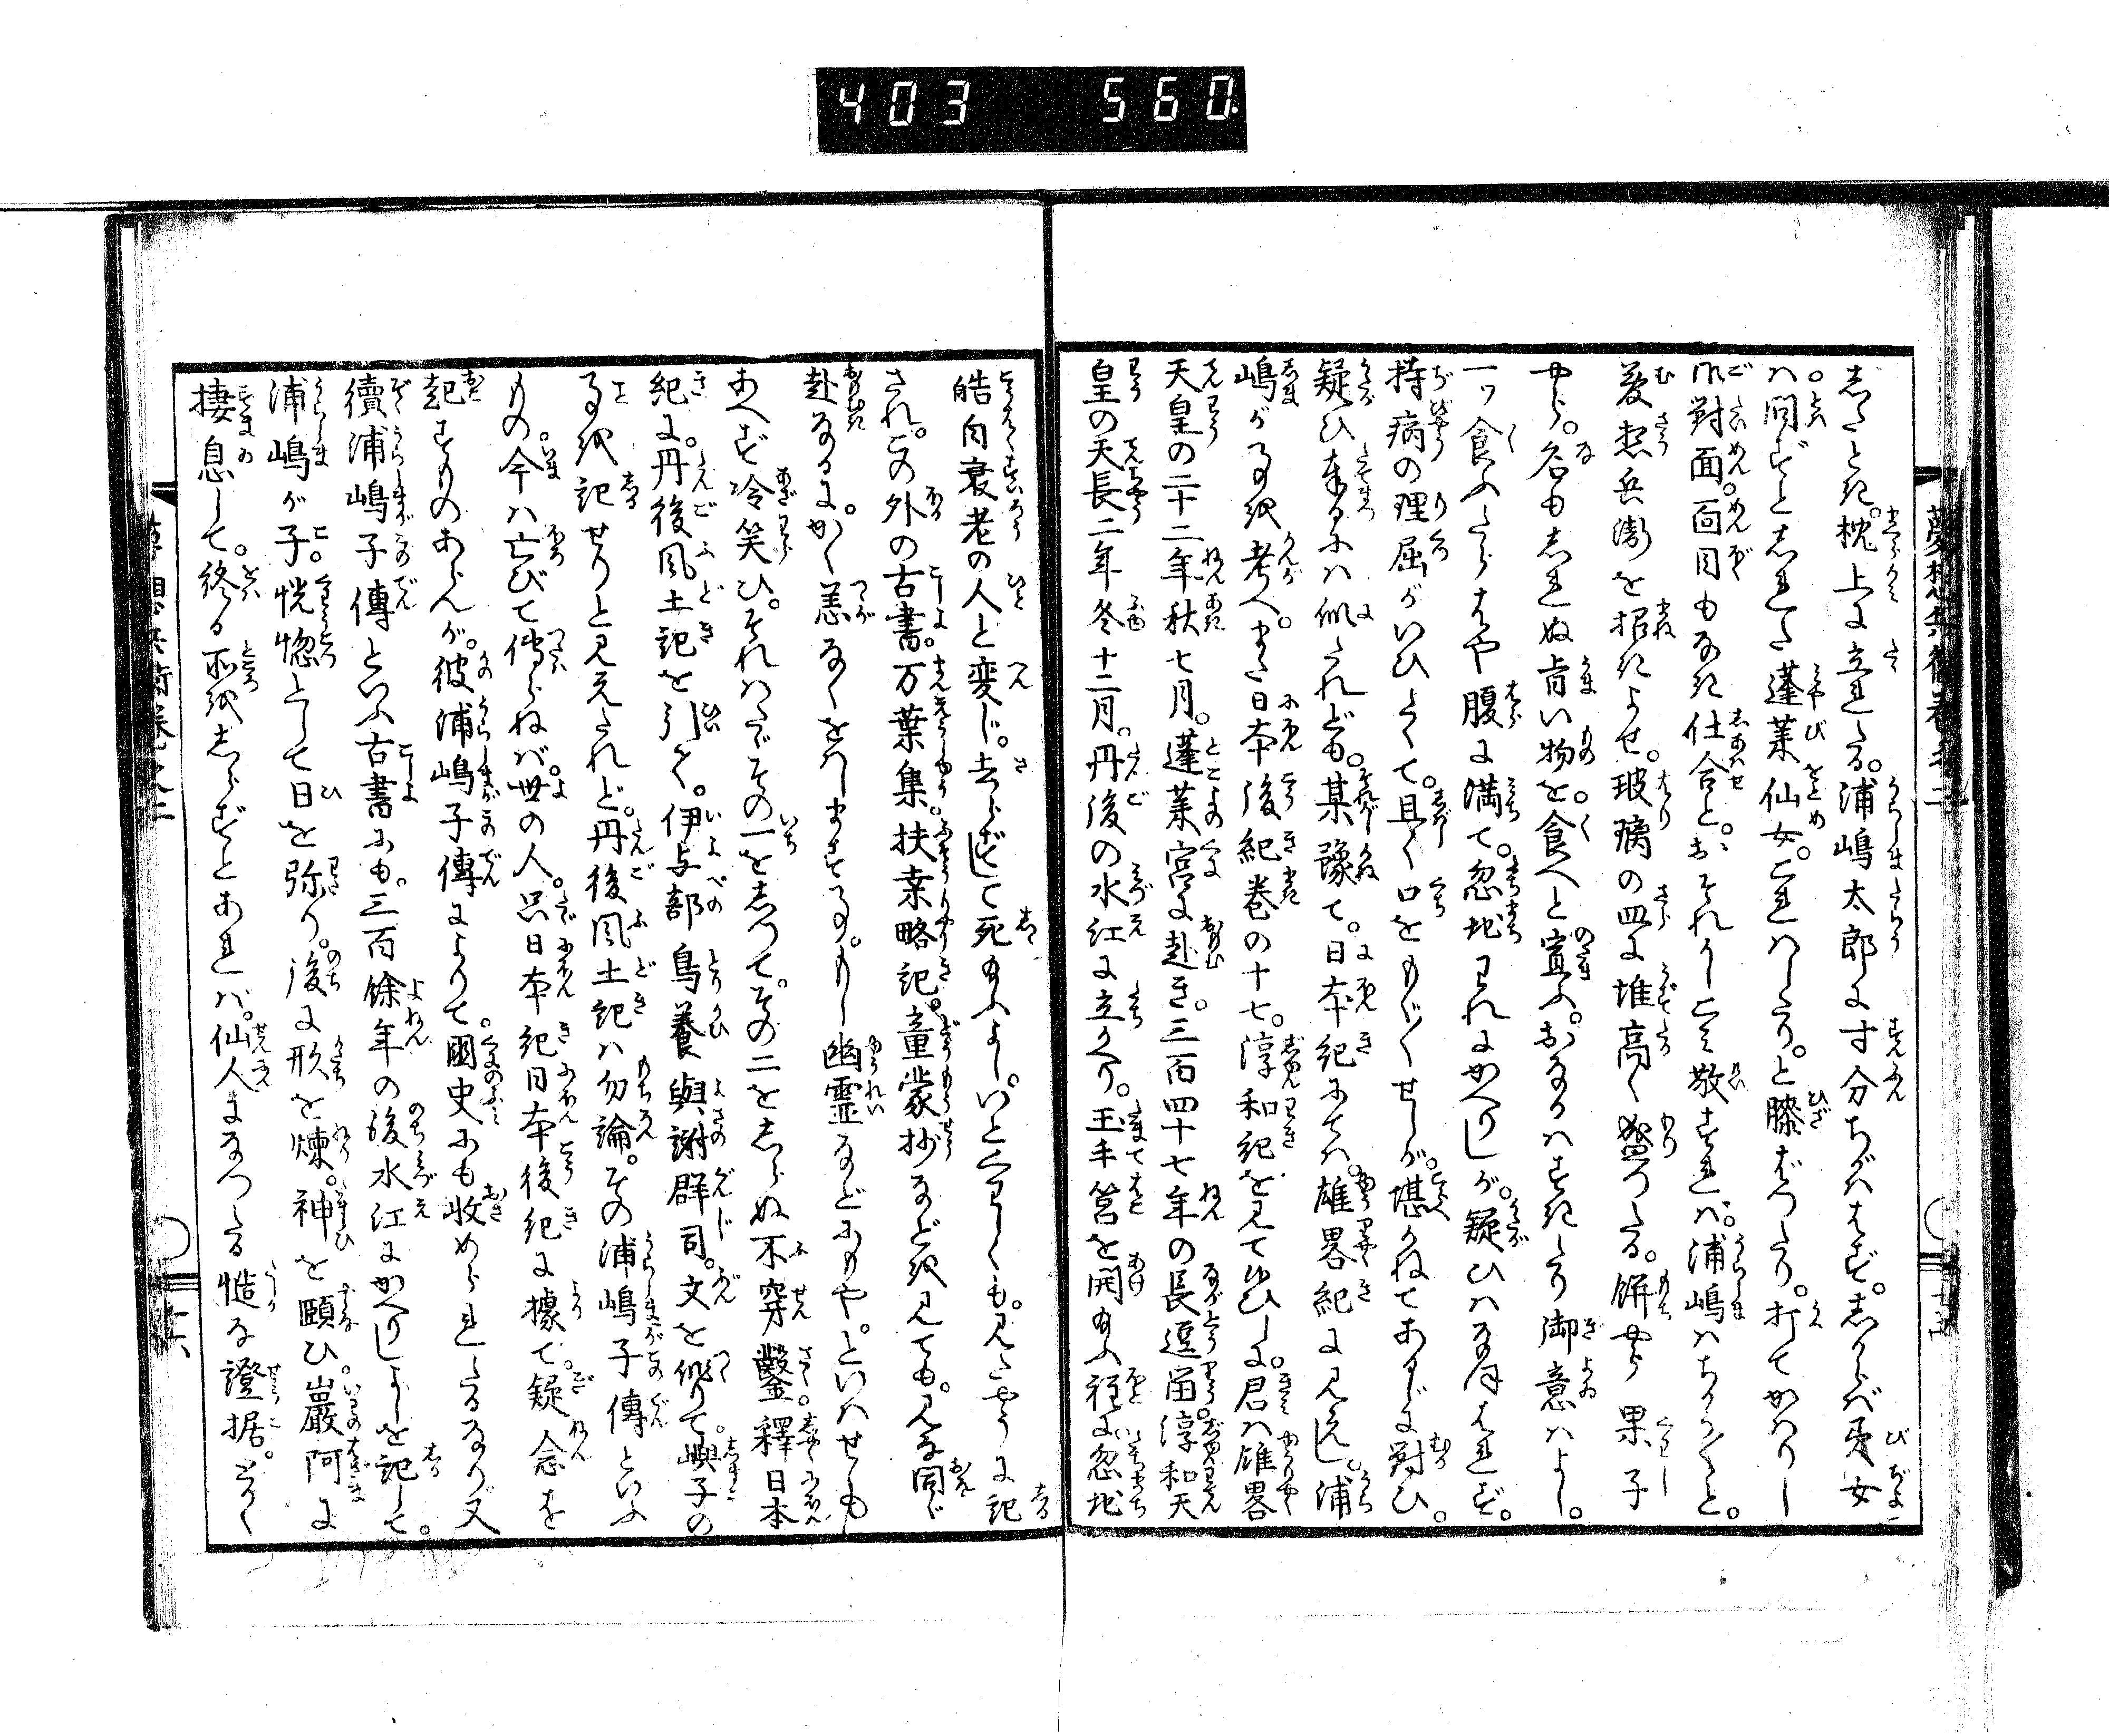 403 560.
夢想兵衛巻之二
志たとき。枕上に立れたる。浦嶋太郎に寸分ちがはねば。志からば美女
は問ずとしれた蓬莱仙女。これはしたり。と膝ばつたり。打てかはりし
御對面。面目もなき仕合と。おそれ入て敬すれば。浦嶋はちか〱と。
夢想兵衛を招きよせ。玻璃の皿に堆高く盛つたる。餅やら果子
やら。名もしれぬ旨い物を。食へと宣ふ。おなかはすきたり御意はよし。
一ッ食ふたらはや腹に満て。忽地われにかへりしが。疑ひはなほはれず。
持病の理屈がいひたくて。且く口をもぢ〱せしが。堪かねてあるじに對ひ。
疑ひ奉るには似たれども。某豫て。日本紀にては。雄畧紀に見えし。浦
嶋が事を考へ。また日本後紀巻の十七。淳和紀を見て候ひしに。君は雄畧
天皇の二十二年秋七月。蓬莱宮に赴き。三百四十七年の長逗留淳和天
皇の天長二年冬十二月。丹後の水江に立かへり。玉手筥を開給ふ程に忽地
皓白衰老の人と変じ。去らずして死給ふよし。いとくはしくも。見たやうに記
され。この外の古書。万葉集。扶桑略記。童蒙抄などを見ても。みな同じ
赴なるに。かく恙なくをはしますは。もし幽霊などにもや。といはせも
あへず冷笑ひ。それはたゞその一をしつて。その二をしらぬ不穿鑿釋日本
紀に。丹後風土記を引て。伊与部鳥養與謝群司。文を作りて。嶼子の
事を記せりと見えたれど。丹後風土記は勿論。その浦嶋子傳といふ
もの。今は亡びて傳らねば。世の人。只日本紀日本後紀に據て。疑念を
起すものあらんが。彼浦嶋子傳によりて。國史にも收められたるなり。又
續浦嶋子傳といふ古書にも。三百餘年の後水江にかへりしよしを記して。
浦嶋が子。恍惚として日を弥り。後に形を煉。神を頤ひ。巖阿に
棲息して。終る所をしらずとあれば。仙人になつたる慥な證据。とく